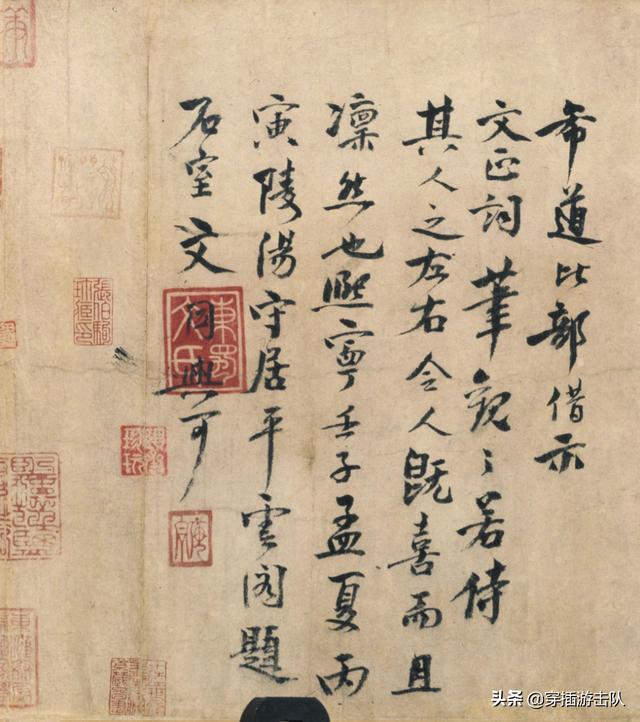 希道比部借示
文正詞筆觀之若侍
其人之左右令人既喜而且
凜然也熙寧壬子孟夏丙
寅陵陽守居平雲閣題
石室文同與可
東蜀文氏
張伯駒珍藏印
头条 @穿插游击队